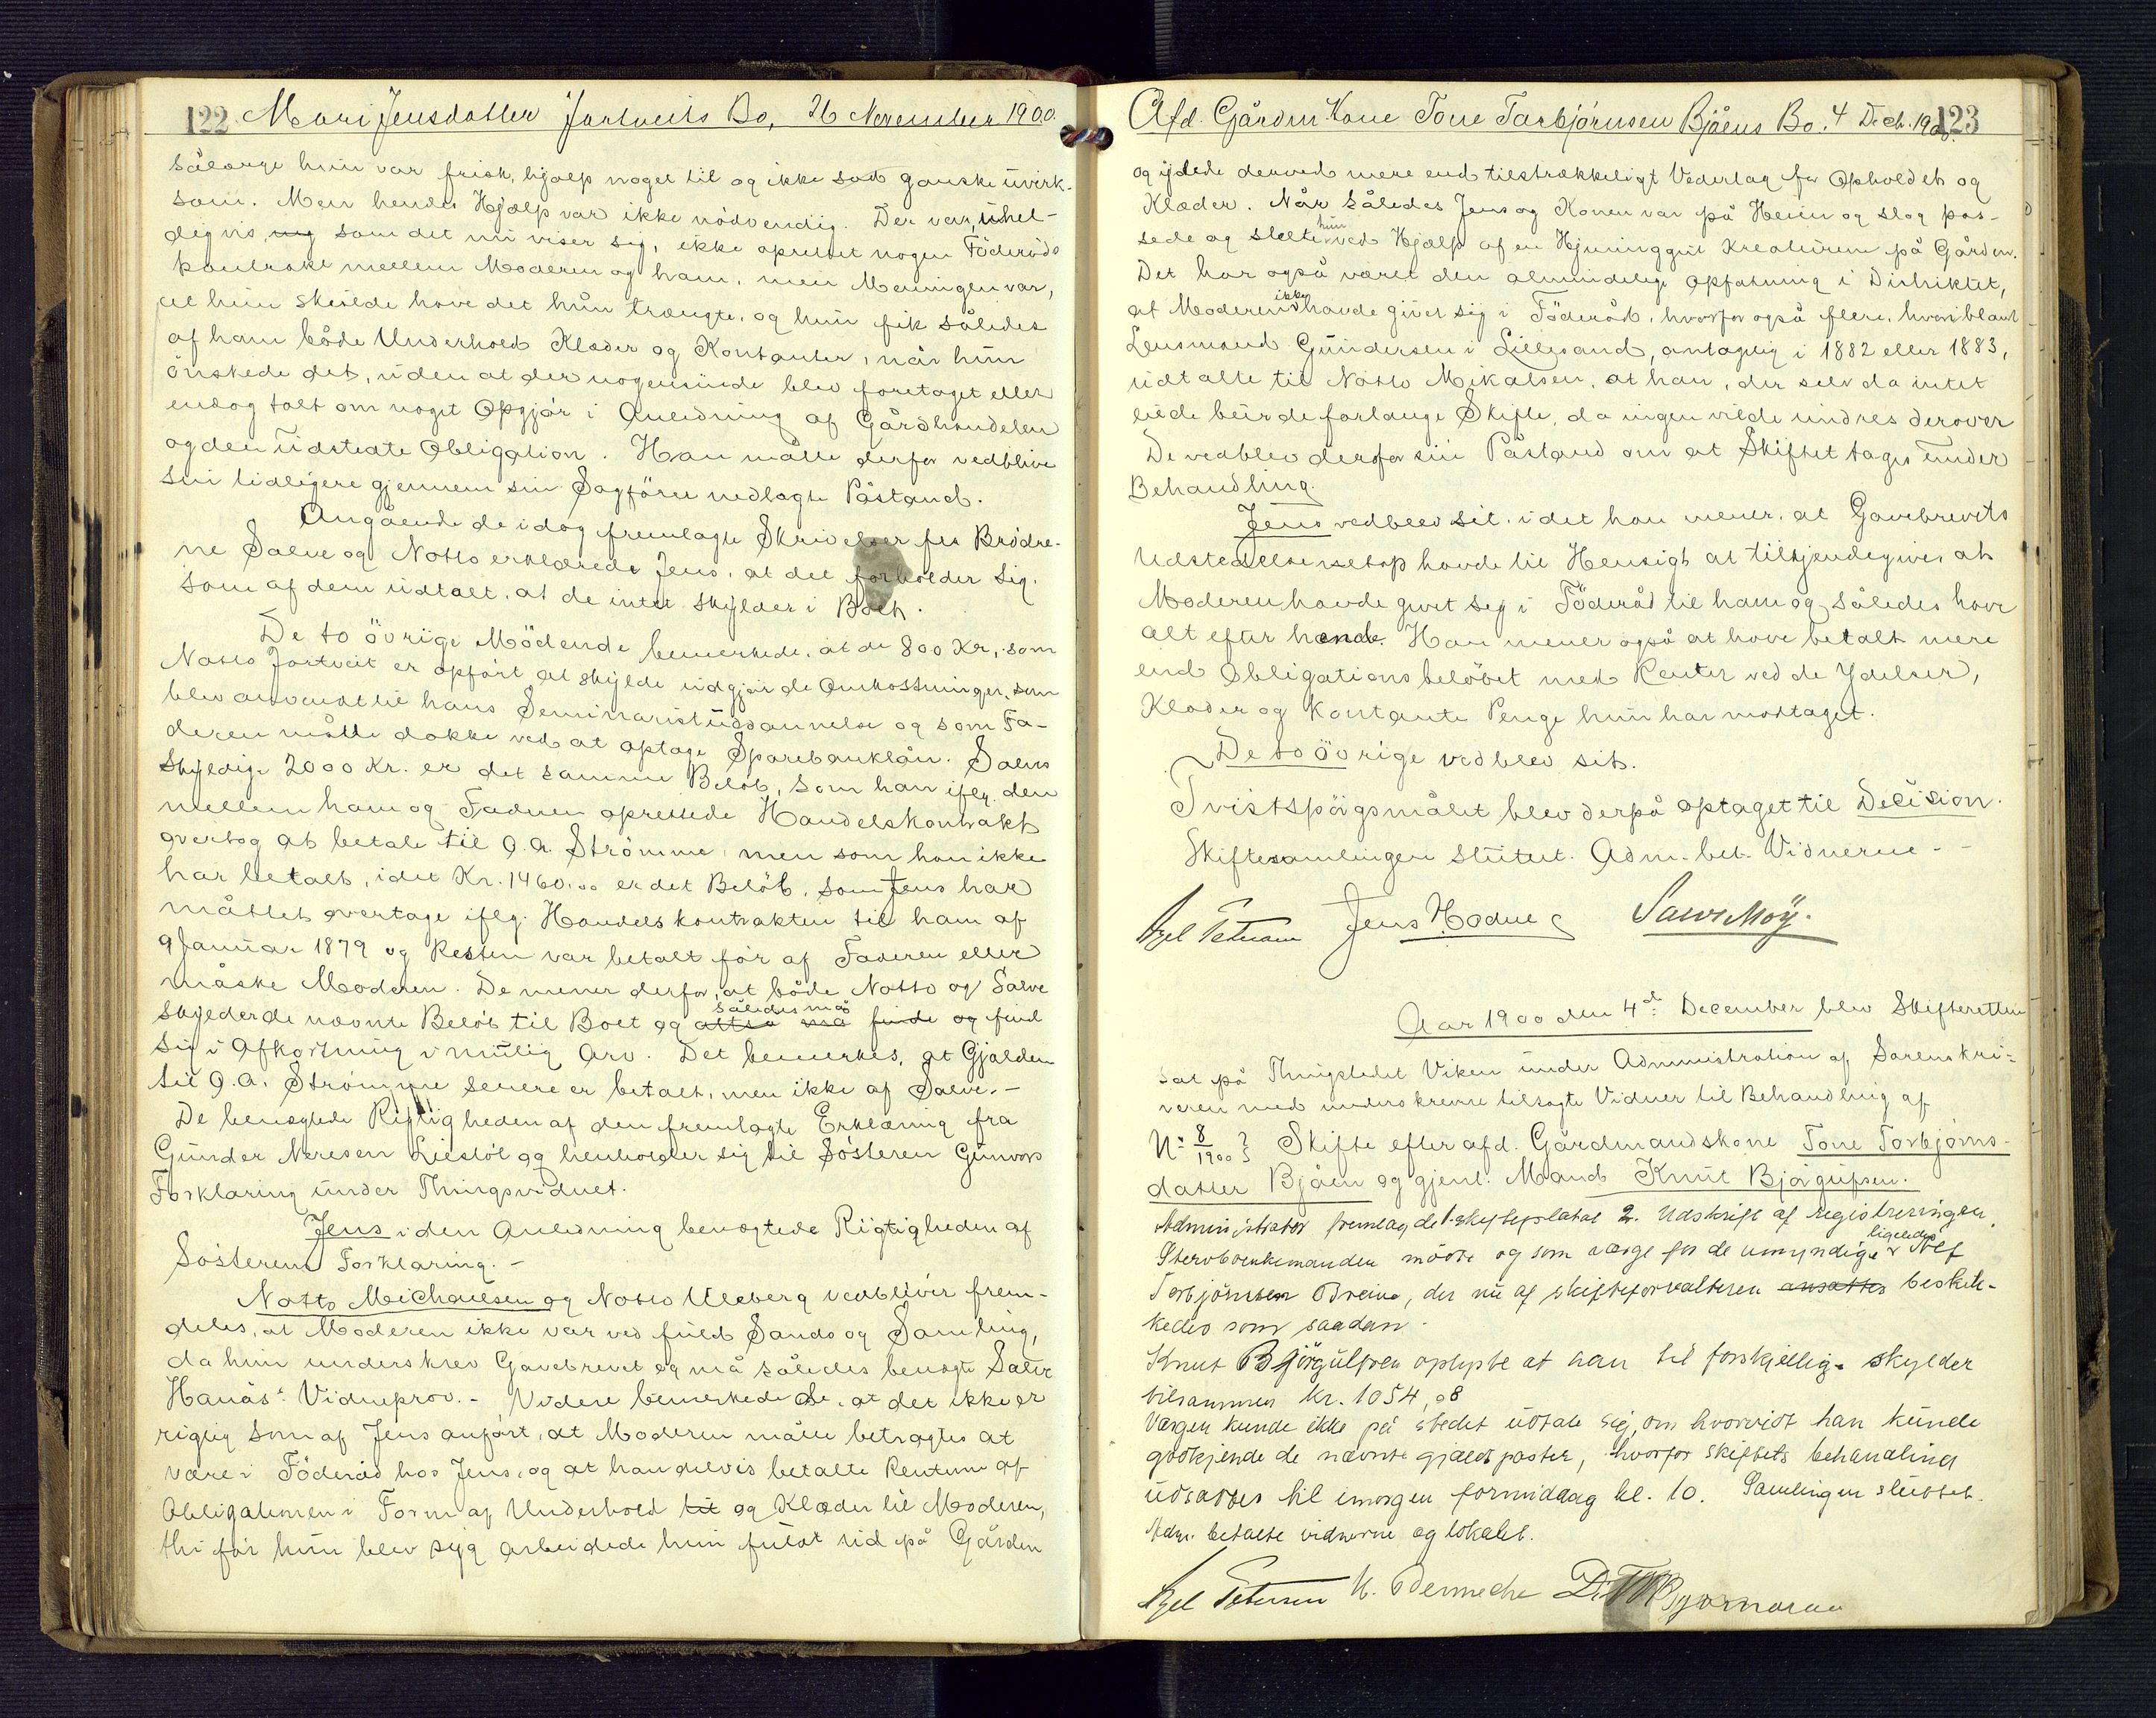 122 Mari Jensdatter Jortveits Bo, 26 November 1900.
sålænge hun var frisk, hjalp noget til og ikke sad ganske uvirk-
som. Men hendes Hjælp var ikke nödvendig. Der var, uhel-
digvis, som det nu viser sig, ikke oprettet nogen Föderåds
kontrakt mellem Moderen og ham, men Meningen var,
at hun skulde have det hun trængte, og hun fik således
af ham både Underhold Klæder og Kontanter, når hun
önskede det, uden at der nogensinde blev foretaget eller
endog talt om noget Opgjör i Anledning af Gårdhandelen
og den Udstedte Obligation. Han måtte derfor vedblive
sin tidligere gjennem sin Sagförer nedlagte Påstand.
Angående de idag fremlagte Skrivelser fra Brödre-
ne Salve og Notto erklærede Jens, at det forholder sig
som af dem udtalt, at de intet skylder i Boet.
De to övrige Mödende bemerkede, at de 800 Kr, som
Notto Jortveit er opfört at skylde udgjör de Omkostninger, som
blev anvendt til hans Seminaristuddannelse og som Fa-
deren måtte dække ved at optage Sparebanklån. Salves
skyldige 2000 Kr. er det samme Belöb, som han iflg. den
mellem ham og Faderen oprettede Handelskontrakt
overtog at betale til O. A. Strömme, men som han ikke
har betalt, idet Kr. 1460.00 er det Belöb, som Jens har
måttet overtage iflg. Handelskontrakten til ham af
9 Januar 1879 og Resten var betalt för af Faderen eller
måske Moderen. De mener derfor, at både Notto og Salve
skylder de nævnte Belöb til Boet og altså må finde og find
således må
sig i Afkortning i mulig Arv. Det bemerkes, at Gjælden
til O. A. Strömme senere er betalt, men ikke af Salve.-
De benegtede Rigtigheden af den fremlagte Erklæring fra
Gunder Neresen Lieslöt og henholder sig til Sösteren Gunvors
Forklaring under Thingsvidnet.
Jens i den Anledning benegtede Rigtigheden af
Sösterens Forklaring. -
Notto Michaelsen og Notto Uleberg vedbliver frem-
deles, at Moderen ikke var ved fuld Sands og Samling,
da hun underskrev Gavebrevet og må således benegte Salve
Hanås' Vidneprov. - Videre bemerkede de, at det ikke er
rigtig som af Jens anfört, at Moderen måtte betragtes at
være i Föderåd hos Jens, og at han delvis betalte Renterne af
Obligationen i Form af Underhold til og Klæder til Moderen,
thi för hun blev syg arbeidede hun fuldt ud på Gården
Afd. Gårdm. Kone Tone Torbjörnsen Bjåens Bo. 4 Dect. 1900. 123
og ydede derved mere end tilstrækkeligt Vederlag for Opholdet og
Klæder. Når således Jens og Konen var på Heien og slog pas-
sede og stelte hun ved Hjælp af en Hjuringgut Kreaturene på Gården.
Det har også været den almindelige Opfatning i Distriktet,
at Moderen ikke havde givet sig i Föderåd, hvorfor også flere, hvoriblandt
Lensmand Gundersen i Lillesand, antagelig i 1882 eller 1883,
udtalte til Notto Mikalsen, at han, der selv da intet
eiede burde forlange Skifte, da ingen vilde undres derover
De vedblev derfor sin Påstand om at Skiftet tages under
Behandling.
Jens vedblev sit, idet han mener, at Gavebrevets
Udstedelse netop havde til Hensigt at tilkjendegive, at
Moderen havde givet sig i Föderåd til ham og således have
alt efter hende. Han mener også at have betalt mere
end Obligationsbelöbet med Renter ved de Ydelser,
Klæder og Kontante Penge hun har modtaget.
De to övrige vedblev sit.
Tvistspörgsmålet blev derpå optaget til Decision.
Skiftesamlingen sluttet. Adm. bet. Vidnerne -
Axel Petersen Jens Hodne Salve Möy.
Aar 1900 den 4de December blev Skifteretten
sat på Thingstedet Viken under Administration af Sorenskri-
veren med underskrevne tilsagte Vidner til Behandling af
No 8/1900 Skifte efter afd. Gårdmandskone Tone Torbjörns-
datter Bjåen og gjenl. Mand Knut Björgufsen.
Administrator fremlagde 1. skifteplakat 2. Udskrift af registreringen
Stervboenkemanden mödte og som verge for de umyndige ligeledes Olef
Torbjörnsen Breive, der nu af skifteforvalteren ansattes beskik-
kedes som saadan.
Knut Björgulfsen oplyste at han til forskjellige skylder
tilsammen Kr. 1054,08
Vergen kunde ikke på stedet udtale sig, om hvorvidt han kunde
godkjende de nævnte gjældsposter, hvorfor skiftets behandling
udsattes til imorgen formiddag kl. 10. Samlingen sluttet.
Adm. betalte vidnerne og lokalet.
Axel Petersen